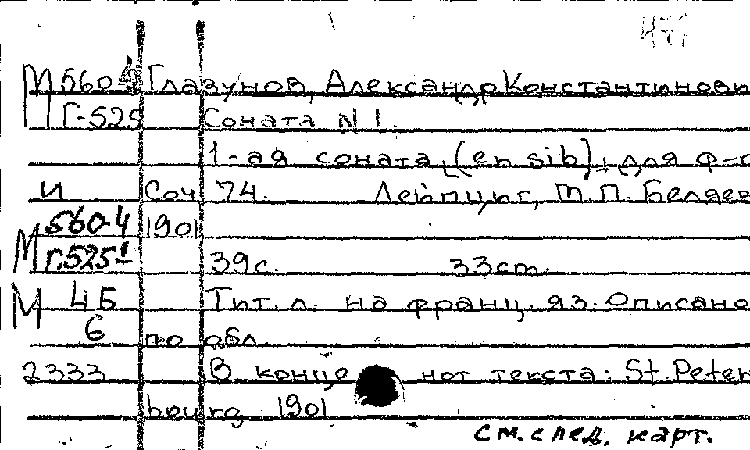 М 560-4 Глазунов, Александр Константинови
Г-525 Соната N 1.
1-ая соната, (en sib), для ф-
и Соч. 74. Лейпциг, М.П. Беляев
М 560-4 1901
Г.525-1 39с. 33cm.
М 4Б Тит. л. на франц. яз. Описано
6 по обл.
2333 В конце нот текста: St. Peter
bourg 1901
см. след. карт.